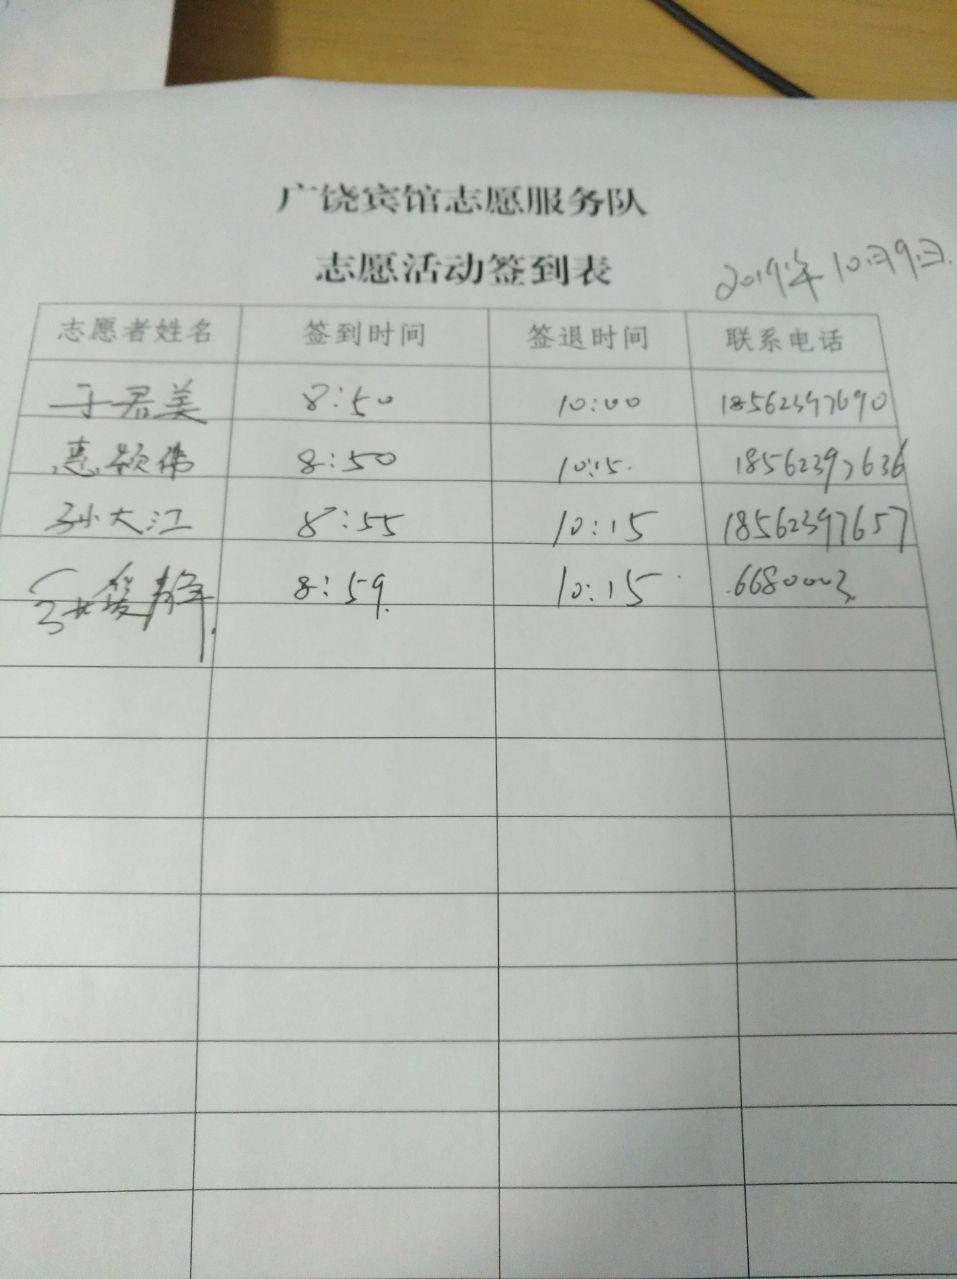 广饶宾馆志愿服务队
志愿活动签到表
2019年10月9日.
志愿者姓名 签到时间 签退时间 联系电话
于君美 8:50 10:00 18562397690
惠颜伟 8:50 10:15. 18562397636
孙大江 8:55 10:15 18562397657
静 8:59. 10:15 6680003